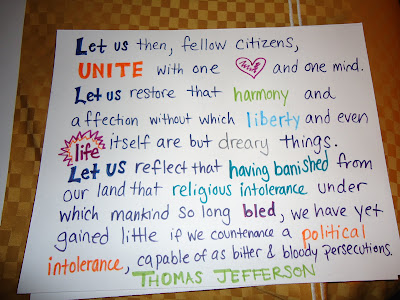 Let us then, fellow citizens,
UNITE with one heart and one mind.
Let us restore that harmony and
affection without which liberty and even
life itself are but dreary things.
Let us reflect that having banished from
our land that religious intolerance under
which mankind so long bled, we have yet
gained little if we countenance a political
intolerance, capable of as bitter & bloody persecutions.
THOMAS JEFFERSON